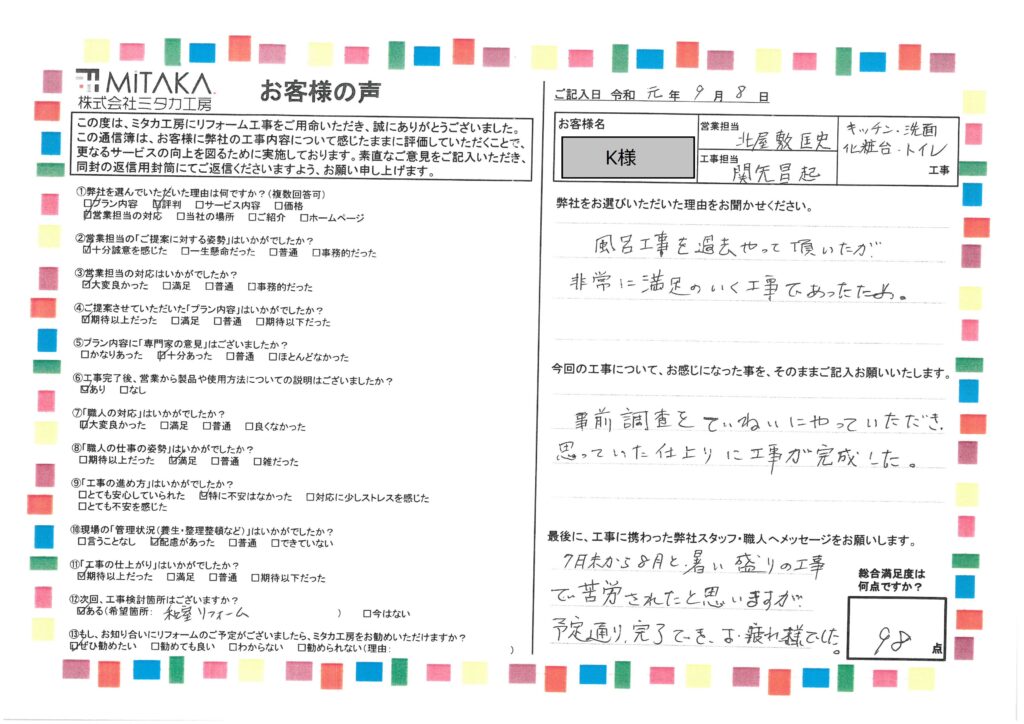 MITAKA
株式会社ミタカ工房
お客様の声
この度は、ミタカ工房にリフォーム工事をご用命いただき、誠にありがとうございました。
この通信簿は、お客様に弊社の工事内容について感じたままに評価していただくことで、
更なるサービスの向上を図るために実施しております。素直なご意見をご記入いただき、
同封の返信用封筒にてご返信くださいますよう、お願い申し上げます。
①弊社を選んでいただいた理由は何ですか?(複数回答可)
☑プラン内容 ☑評判 □サービス内容 □価格
☑営業担当の対応 □当社の場所 □ご紹介 □ホームページ
②営業担当の「ご提案に対する姿勢」はいかがでしたか?
☑十分誠意を感じた □一生懸命だった □普通 □事務的だった
③営業担当の対応はいかがでしたか?
☑大変良かった □満足 □普通 □事務的だった
④ご提案させていただいた「プラン内容」はいかがでしたか?
☑期待以上だった □満足 □普通 □期待以下だった
⑤プラン内容に「専門家の意見」はございましたか?
□かなりあった ☑十分あった □普通 □ほとんどなかった
⑥工事完了後、営業から製品や使用方法についての説明はございましたか?
☑あり □なし
⑦「職人の対応」はいかがでしたか?
☑大変良かった □満足 □普通 □良くなかった
⑧「職人の仕事の姿勢」はいかがでしたか?
□期待以上だった ☑満足 □普通 □雑だった
⑨「工事の進め方」はいかがでしたか?
□とても安心していられた ☑特に不安はなかった □対応に少しストレスを感じた
□とても不安を感じた
⑩現場の「管理状況(養生・整理整頓など)」はいかがでしたか?
□言うことなし ☑配慮があった □普通 □できていない
⑪「工事の仕上がり」はいかがでしたか?
☑期待以上だった □満足 □普通 □期待以下だった
⑫次回、工事検討箇所はございますか?
☑ある(希望箇所: 和室リフォーム ) □今はない
⑬もし、お知り合いにリフォームのご予定がございましたら、ミタカ工房をお勧めいただけますか?
☑ぜひ勧めたい □勧めても良い □わからない □勧められない(理由: )
ご記入日 令和 元年 9月 8日
お客様名
K様
営業担当 北屋敷 匡史
工事担当 関矢昌起
キッチン・洗面
化粧台・トイレ
工事
弊社をお選びいただいた理由をお聞かせください。
風呂工事を過去やって頂いたが
非常に満足のいく工事であったため。
今回の工事について、お感じになった事を、そのままご記入お願いいたします。
事前調査をていねいにやっていただき、
思っていた仕上りに工事が完成した。
最後に、工事に携わった弊社スタッフ・職人へメッセージをお願いします。
7月末から8月と、暑い盛りの工事
で苦労されたと思いますが、
予定通り、完了でき、お疲れ様でした。
総合満足度は
何点ですか?
98点